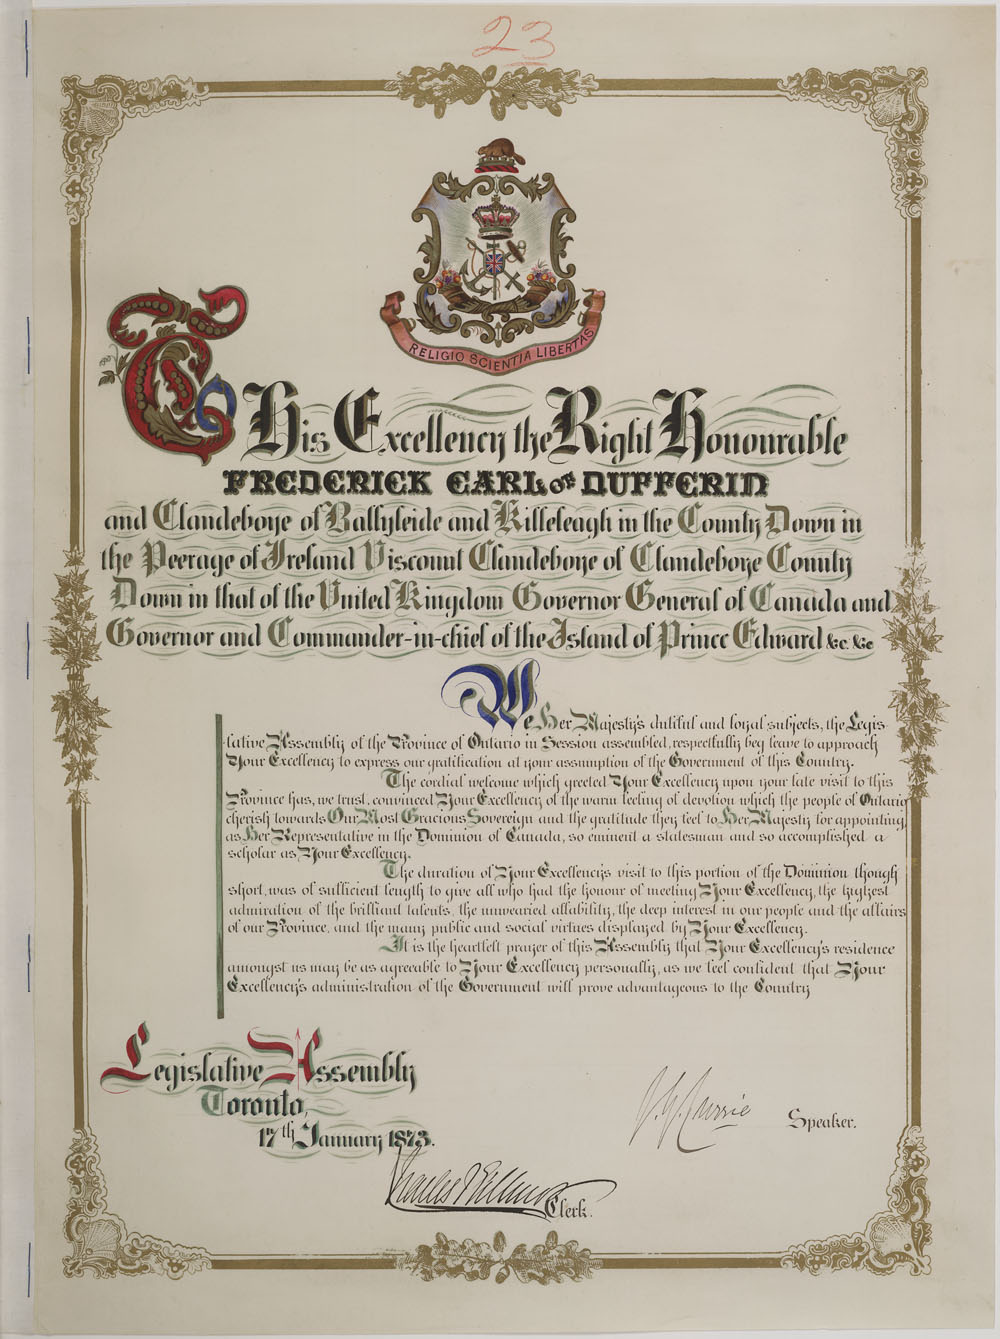 23
RELIGIO SCIENTIA LIBERTAS
To His Excellency the Right Honourable
FREDERICK EARL OF DUFFERIN
and Clandeboye of Ballyleide and Killeleagh in the County Down in
the Peerage of Ireland Viscount Clandeboye of Clandeboye County
Down in that of the United Kingdom Governor General of Canada and
Governor and Commander-in-chief of the Island of Prince Edward &c. &c
We Her Majesty's dutiful and loyal subjects, the Legis-
lative Assembly of the Province of Ontario in Session assembled, respectfully beg leave to approach
Your Excellency to express our gratification at your assumption of the Government of this Country.
The cordial welcome which greeted Your Excellency upon your late visit to this
Province has, we trust, convinced Your Excellency of the warm feeling of devotion which the people of Ontario
cherish towards Our Most Gracious Sovereign and the gratitude they feel to Her Majesty for appointing,
as Her Representative in the Dominion of Canada, so eminent a statesman and so accomplished a
scholar as Your Excellency.
The duration of Your Excellency's visit to this portion of the Dominion though
short, was of sufficient length to give all who had the honour of meeting Your Excellency, the highest
admiration of the brilliant talents, the unwearied affability, the deep interest in our people and the affairs
of our Province, and the many public and social virtues displayed by Your Excellency.
It is the heartfelt prayer of this Assembly that Your Excellency's residence
amongst us may be as agreeable to Your Excellency personally, as we feel confident that Your
Excellency's administration of the Government will prove advantageous to the Country
Legislative Assembly
Toronto,
17th January 1873.
J. G. Currie Speaker.
Charles T Gillmor Clerk.